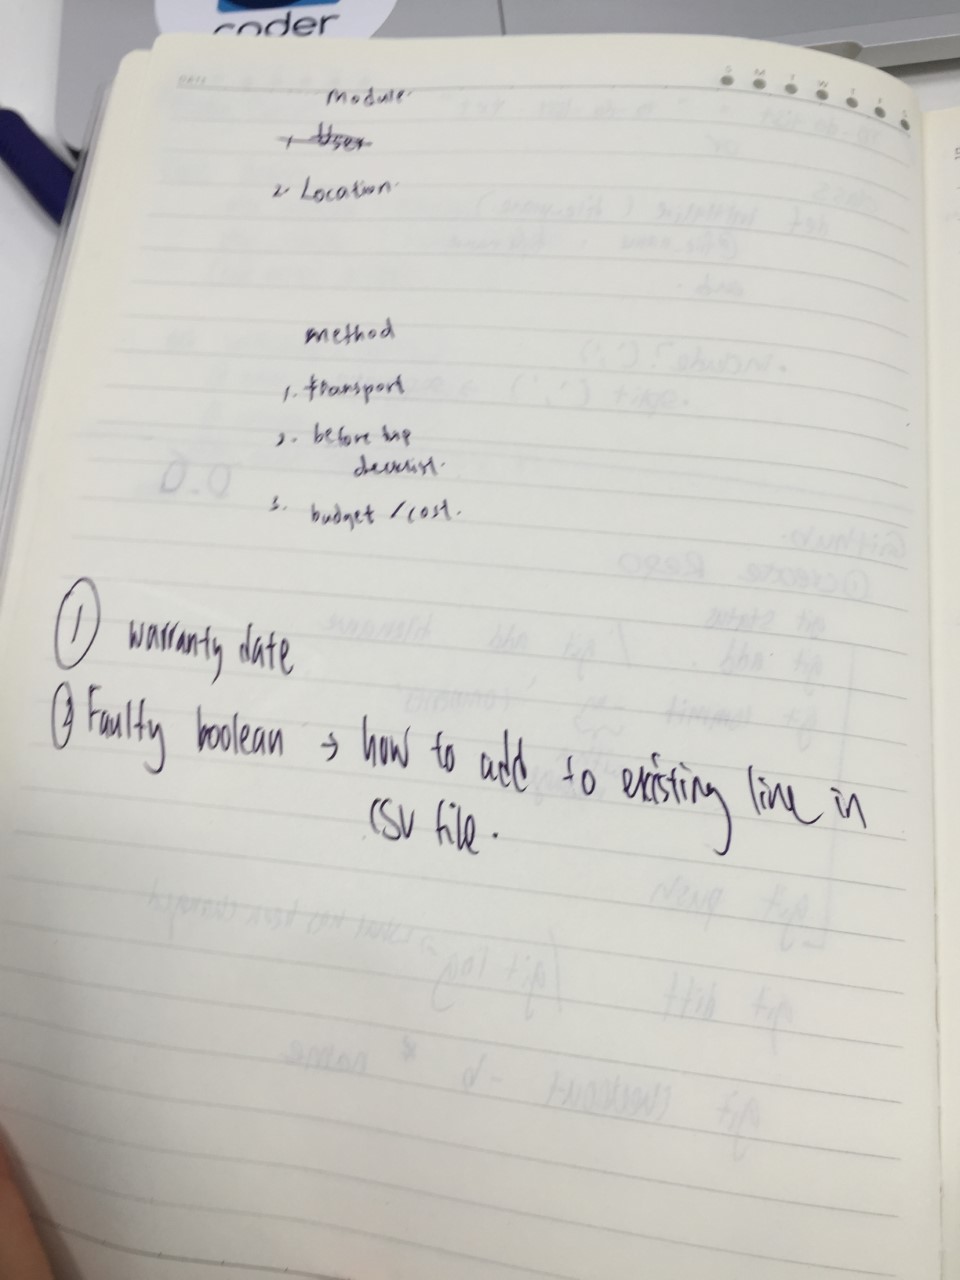 coder
DATE
S M T W T F S
module.
1. User
2. Location.
method
1. transport
2. before trip
3. budget / cost.
① warranty date
② Faulty boolean → how to add to existing line in
CSV file.